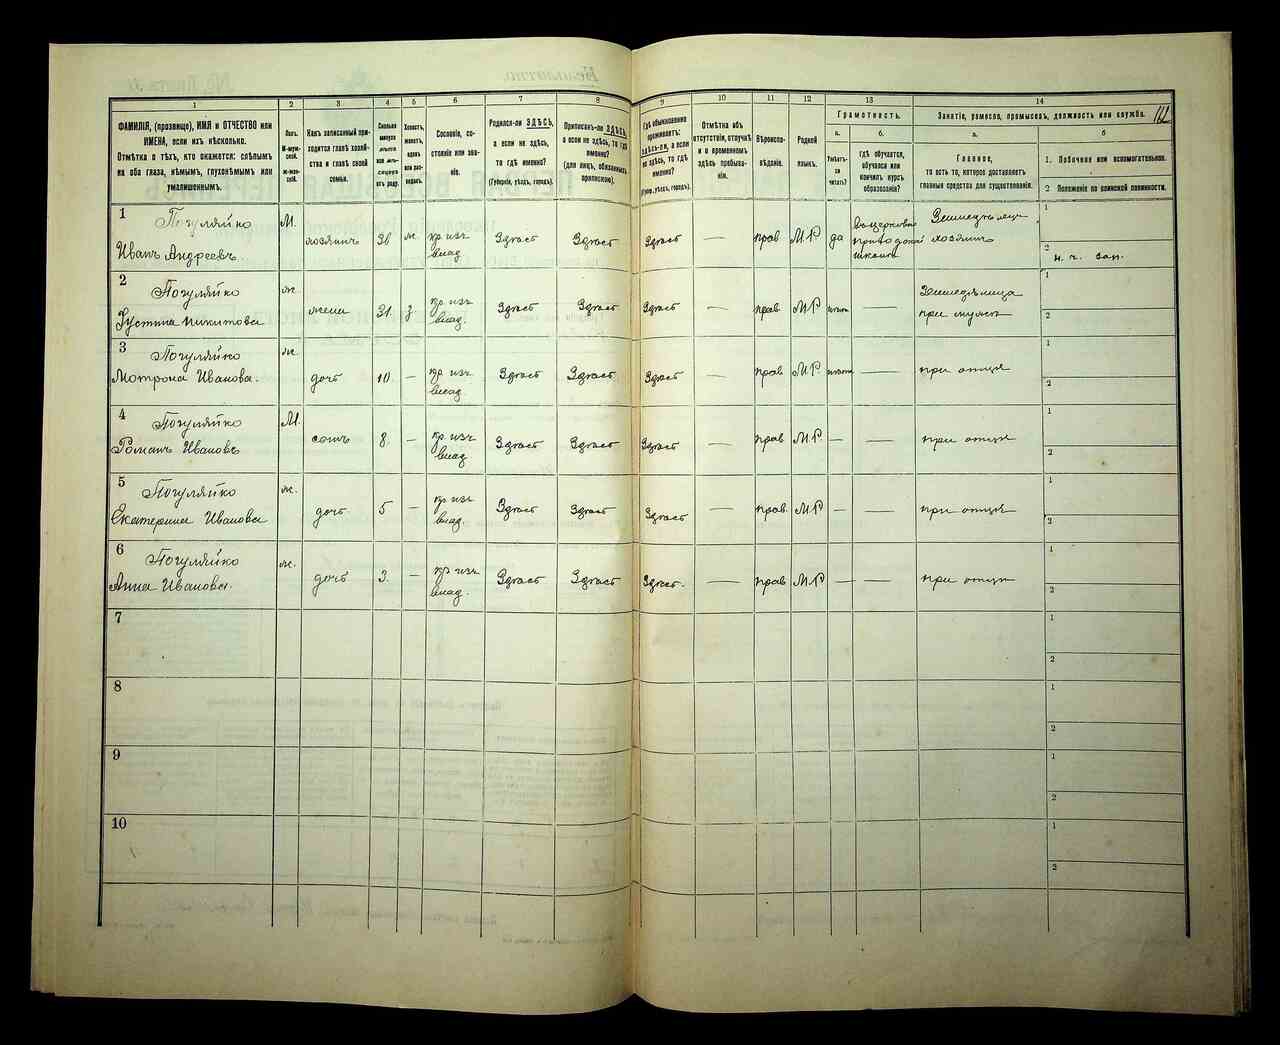 1 2 3 4 5 6 7 8 9 10 11 12 13 14
ФАМИЛІЯ, (прозвище), ИМЯ и ОТЧЕСТВО или
ИМЕНА, если ихъ нѣсколько.
Отмѣтка о тѣхъ, кто окажется: слѣпымъ
на оба глаза, нѣмымъ, глухонѣмымъ или
умалишеннымъ.
Полъ.
М-муж-
ской.
ж-жен-
скій.
Какъ записанный при-
ходится главѣ хозяй-
ства и главѣ своей
семьи.
Сколько
минуло
лѣтъ
или мѣ-
сяцевъ
отъ роду.
Холостъ,
женатъ,
вдовъ
или раз-
веденъ.
Сословіе, со-
стояніе или зва-
ніе.
Родился-ли ЗДѢСЬ,
а если не здѣсь,
то гдѣ именно?
(Губернія, уѣздъ, городъ).
Приписанъ-ли ЗДѢСЬ,
а если не здѣсь, то гдѣ
именно?
(для лицъ, обязанныхъ
припискою).
Гдѣ обыкновенно
проживаетъ:
Здѣсь-ли, а если
не здѣсь, то гдѣ
именно?
(Губерн., уѣздъ, городъ).
Отмѣтка объ
отсутствіи, отлучкѣ
и о временномъ
здѣсь пребыва-
ніи.
Вѣроиспо-
вѣданіе.
Родной
языкъ.
Грамотность.
а.
Умѣетъ-
ли
читать?
б.
гдѣ обучается,
обучался или
кончилъ курсъ
образованія?
Занятіе, ремесло, промыселъ, должность или служба.
а.
Главное,
то есть то, которое доставляетъ
главныя средства для существованія.
б
1. Побочное или вспомогательное.
2 Положеніе по воинской повинности.
1
Погуляйко
Иванъ Андреевъ
М. хозяинъ м. кр изъ
влад.
Здѣсь Здѣсь Здѣсь — прав М.Р да
приходской
школѣ
хозяинъ
1
2
н. ч. зап.
2
Погуляйко
Іустина Никитова
ж жена 31. з кр изъ
влад.
Здѣсь Здѣсь Здѣсь — прав М.Р —
Земледѣлица
при мужѣ
1
2
3
Погуляйко
Мотрона Иванова.
ж дочь 10 — кр изъ
влад.
Здѣсь Здѣсь Здѣсь — прав М.Р. —
при отцѣ
1
2
4
Погуляйко
Романъ Ивановъ
М. сынъ 8. — кр. изъ
влад
Здѣсь Здѣсь Здѣсь — прав М.Р. — —
при отцѣ
1
2
5
Погуляйко
Екатерина Иванова
ж. дочь 5 — кр изъ
влад.
Здѣсь Здѣсь Здѣсь — прав. М.Р — —
при отцѣ
1
2
6
Погуляйко
Анна Иванова.
ж. дочь 3. — кр изъ
влад.
Здѣсь Здѣсь Здѣсь. — прав М.Р — —
при отцѣ
1
2
7
1
2
8
1
2
9
1
2
10
1
2